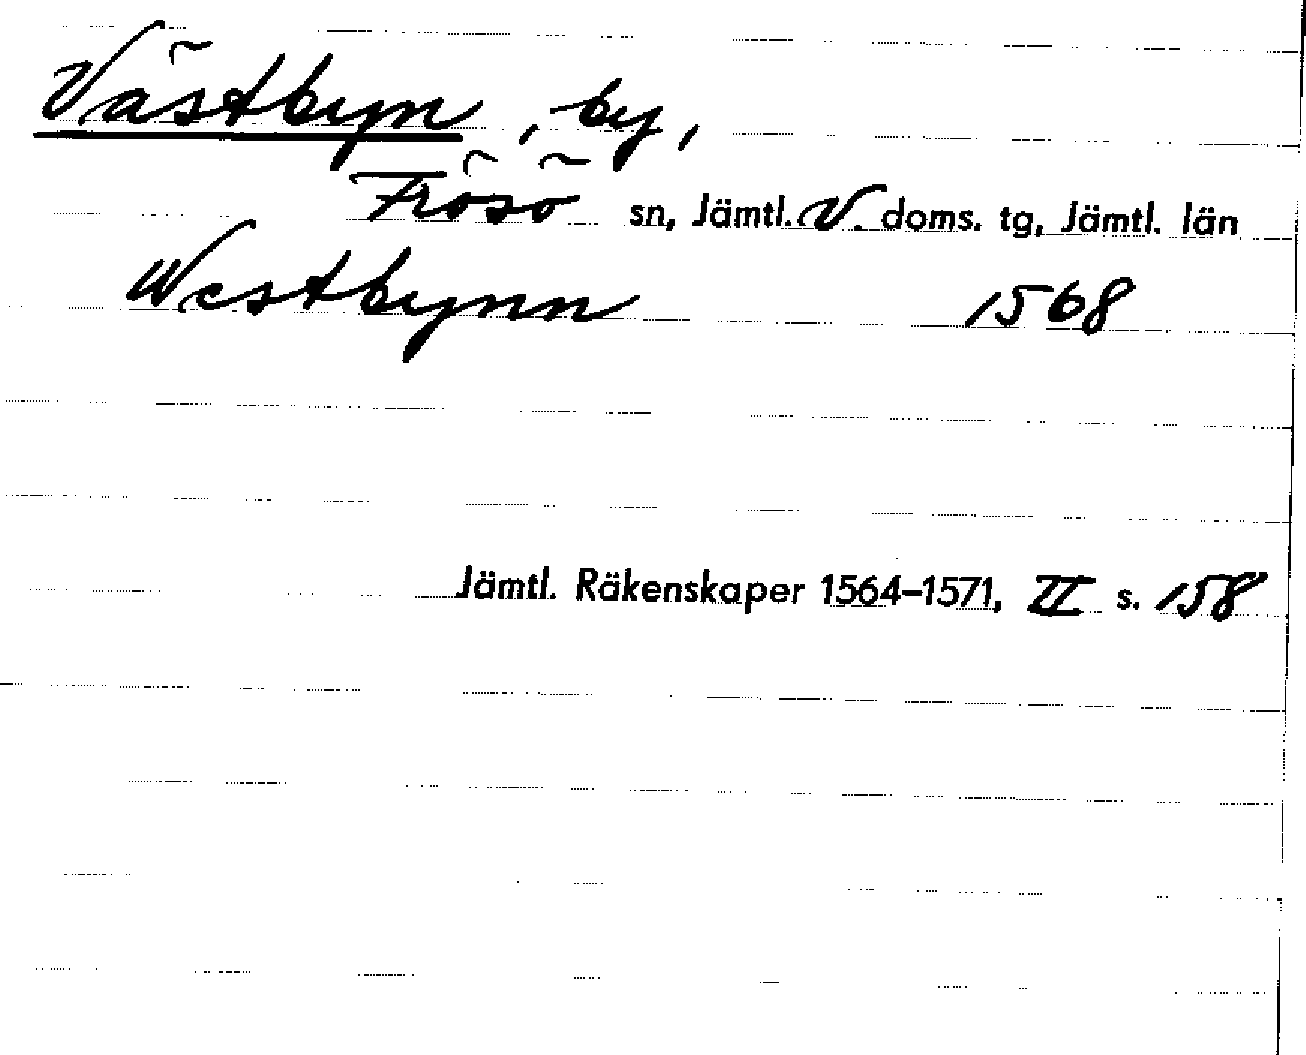 Västbyn, by,
Frösö sn, Jämtl. V. doms. tg, Jämtl. län
Westbynn 1568
Jämtl. Räkenskaper 1564–1571, II s. 158